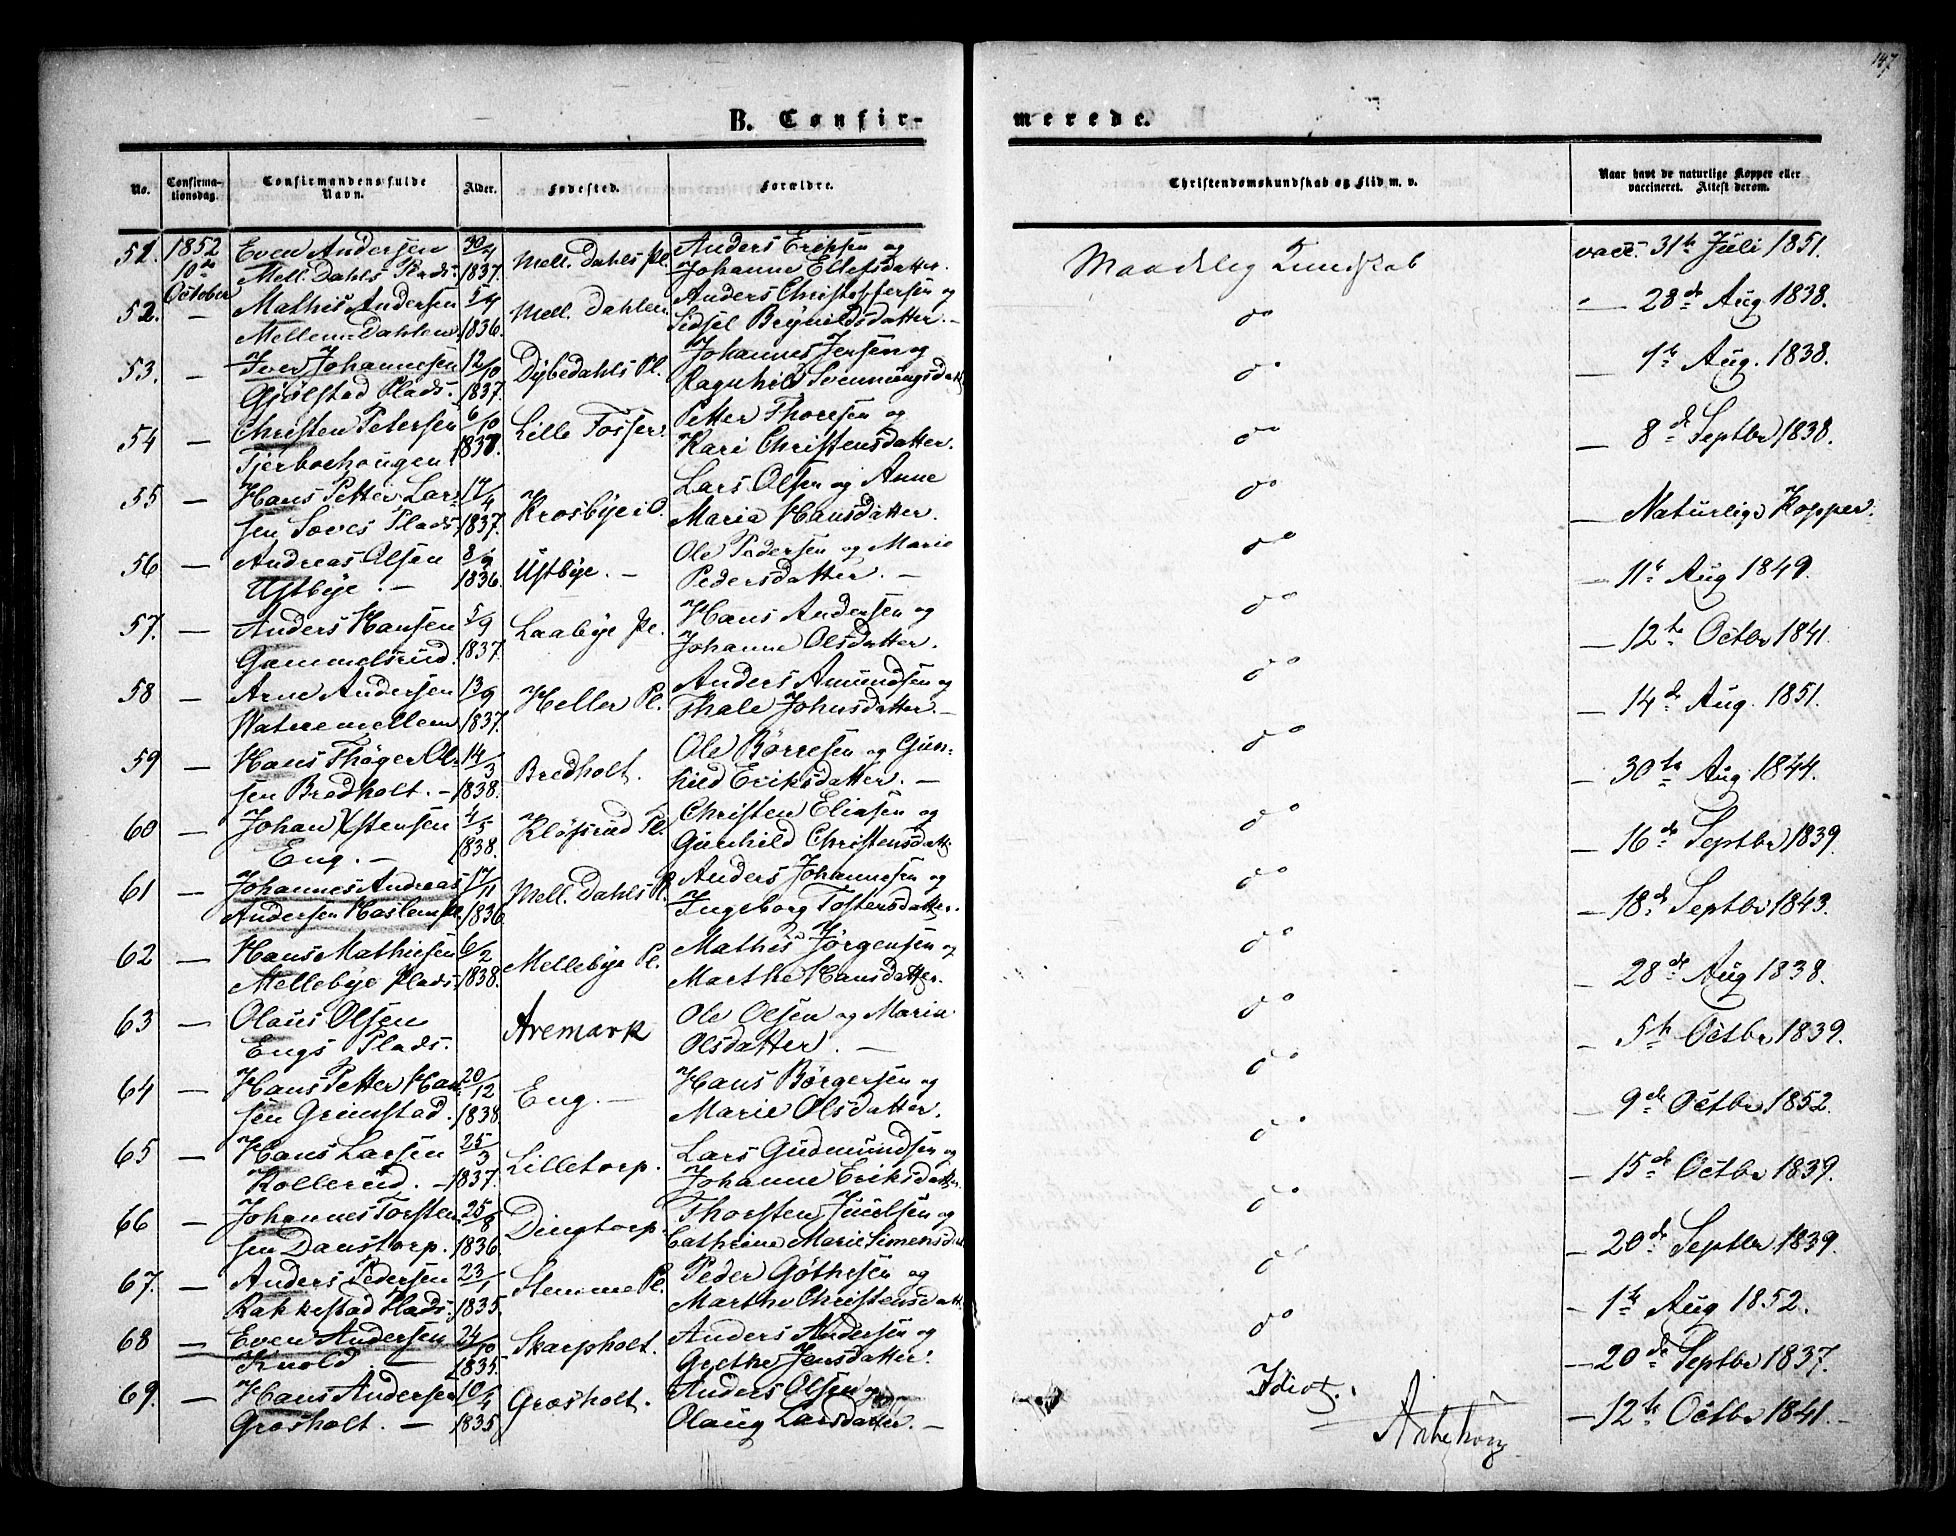 147
B. Confir-
merede.
No.
Confirma-
tionsdag.
Confirmandens fulde
Navn.
Alder.
Fødested.
Forældre.
Christendomskundskab og Flid m. v.
Naar havt de naturlige Kopper eller
vaccineret. Attest derom.
51. 1852 Even Andersen 30/4 Mell. Dahls Pl. Anders Erichsen og Maadelig Kundskab vacc. 31te Juli 1851.
10de Mell. Dahls Plads. 1837. Johanne Ellefsdatter.
October
52. — Mathis Andersen 5/4 Mell. Dahlen Anders Christoffersen og do — 28de Aug 1838.
Mellem Dahlen 1836. Sidsel Brynildsdatter. —
53. — Iver Johannesen 12/10 Dybedahls Pl. Johannes Jensen og do — 1te Aug. 1838.
Gjølstad Plads. 1837. Ragnhild Svenningsdatt
54 — Christen Petersen 6/10 Lille Fosser. Petter Thoresen og do — 8de Septbr 1838.
Tjerboehougen 1837. Kari Christensdatter.
55 — Hans Petter Lar- 17/4 Krosbye i O. Lars Olsen og Anne do — Naturlige Kopper.
sen Soves Plads 1837. Maria Hansdatter.
56 — Andreas Olsen 8/9 Ustbye. — Ole Pedersen og Marie do — 11te Aug 1849.
Ustbye. — 1836. Pedersdatter. —
57. — Anders Hansen 5/9 Laabye Pl. Hans Andersen og do — 12te Octbr 1841.
Gammelsrud. 1837. Johanne Olsdatter.
58 — Arne Andersen 13/9 Heller Pl. Anders Amundsen og do — 14de Aug. 1851.
Watnemellem 1837. Thale Johnsdatter. —
59 — Hans Thøger Ol- 14/3 Bredholt. Ole Börresen og Gun- do — 30te Aug 1844.
sen Bredholt. — 1838. hild Eriksdatter. —
60 — Johan Xstensen 4/5 Kløfsrud Pl. Christen Eliasen og do — 16de Septbr 1839.
Eng. — 1838. Gunhild Christensdatt.
61 — Johannes Andreas 17/11 Mell. Dahls Pl. Anders Johannesen og do — 18de Septbr 1843.
Andersen Haslem Pl. 1836 Ingeborg Tostensdatter.
62 — Hans Mathiesen 6/2 Mellebye Pl. Mathis Jörgensen og do — 28de Aug 1838.
Mellebye Plads 1838. Marthe Hansdatter.
63 — Olaus Olsen Aremark Ole Olsen og Maria do — 5te Octbr 1839.
Engs Plads. Olsdatter. —
64 — Hans Petter Han- 20/12 Eng. — Hans Börgersen og do — 9de Octbr 1852.
sen Grimstad. 1838. Marie Olsdatter.
65 — Hans Larsen 25/3 Lilletorp. Lars Gudmundsen og do — 15de Octbr 1839.
Kollerud. — 1837. Johanne Eriksdatter.
66 — Johannes Torsten- 25/8 Dingtorp. Thorsten Juulsen og do — 20de Septbr 1839.
sen Danstorp. 1836. Cathrine Marie Simensdat
67. — Anders Pedersen 23/1 Stemme Pl. Peder Göthesen og do — 1te Aug 1852.
Rakkestad Plads. 1835. Marthe Christensdatt.
68 — Even Andersen 24/10 Skarpholt. Anders Andersen og do — 20de Septbr 1837.
Knold. — 1835. Grethe Jensdatter.
69. — Hans Andersen 10/4 Grosholt. Anders Olsen og Idiot. — 12te Octbr 1841. —
Grosholt. — 1835 Olaug Larsdatter. —